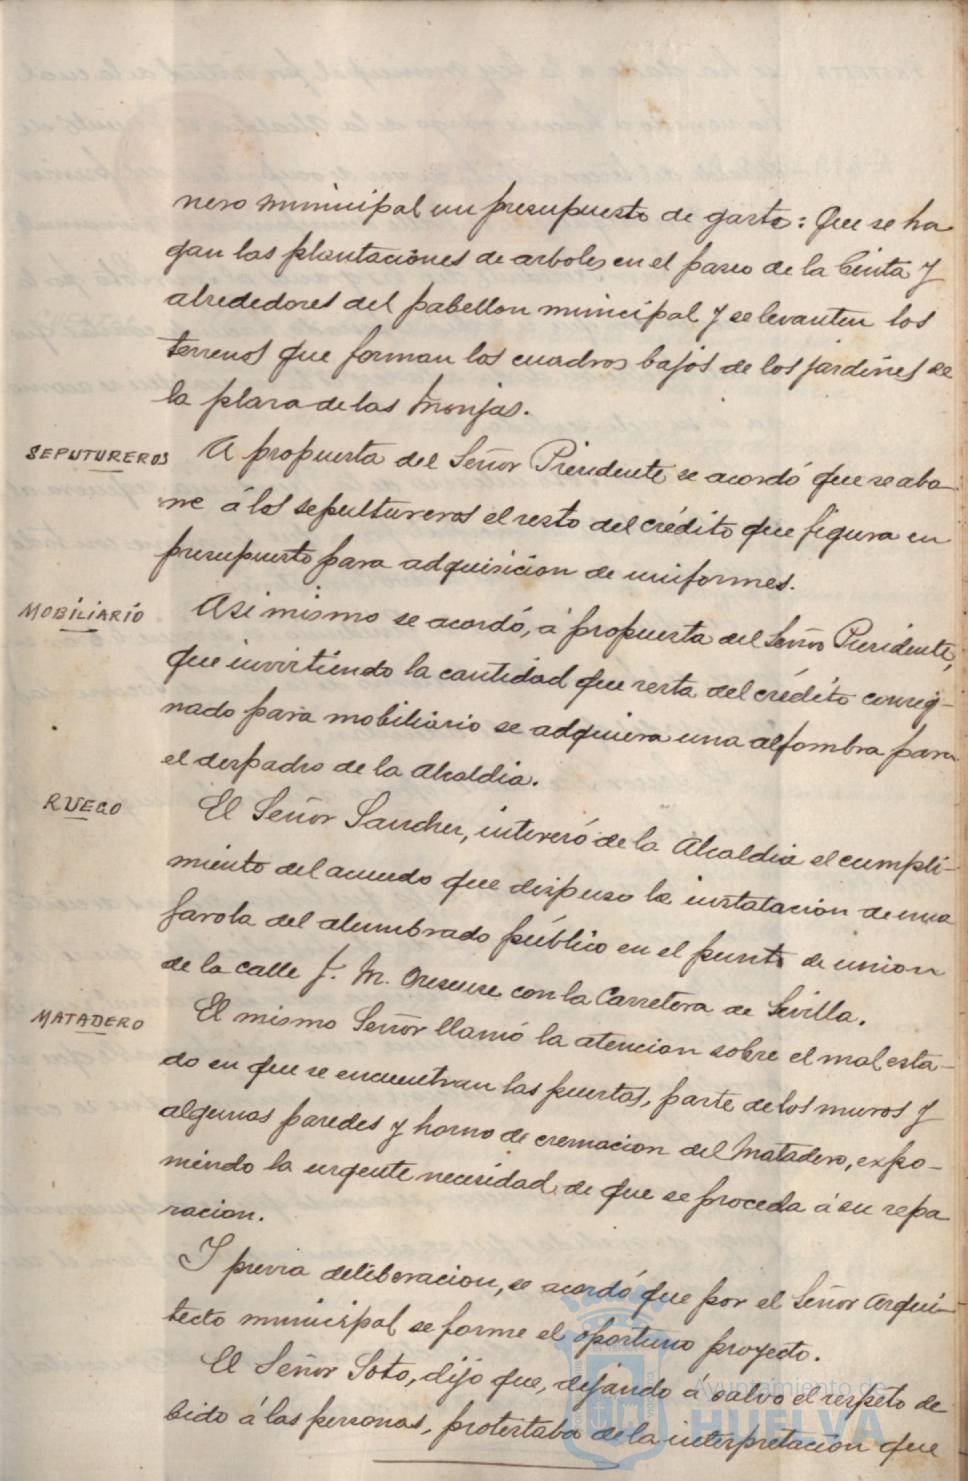 nero municipal un presupuesto de gasto: Que se ha
gan las plantaciones de arboles en el paseo de la Cinta y
alrededores del pabellon municipal y se levanten los
terrenos que forman los cuadros bajos de los jardines de
la plaza de las Monjas.
SEPUTUREROS A propuesta del Señor Presidente se acordó que se abo
ne á los sepultureros el resto del crédito que figura en
presupuesto para adquisicion de uniformes.
MOBILIARIO Asi mismo se acordó, á propuesta del Señor Presidente,
que invirtiendo la cantidad que resta del crédito consig-
nado para mobiliario se adquiera una alfombra para
el despacho de la Alcaldia.
RUEGO El Señor Sanchez, interesó de la Alcaldia el cumpli-
miento del acuerdo que dispuso la instalacion de una
farola del alumbrado público en el punto de union
de la calle J. M. con la Carretera de Sevilla.
MATADERO El mismo Señor llamó la atencion sobre el mal esta-
do en que se encuentran las puertas, parte de los muros y
algunas paredes y horno de cremacion del Matadero, expo-
niendo la urgente necesidad de que se proceda á su repa
racion.
Y previa deliberacion, se acordó que por el Señor Arqui-
tecto municipal se forme el oportuno proyecto.
El Señor Soto, dijo que, dejando á salvo el respeto de
bido á las personas, protestaba de la interpretacion que
Ayuntamiento de
HUELVA